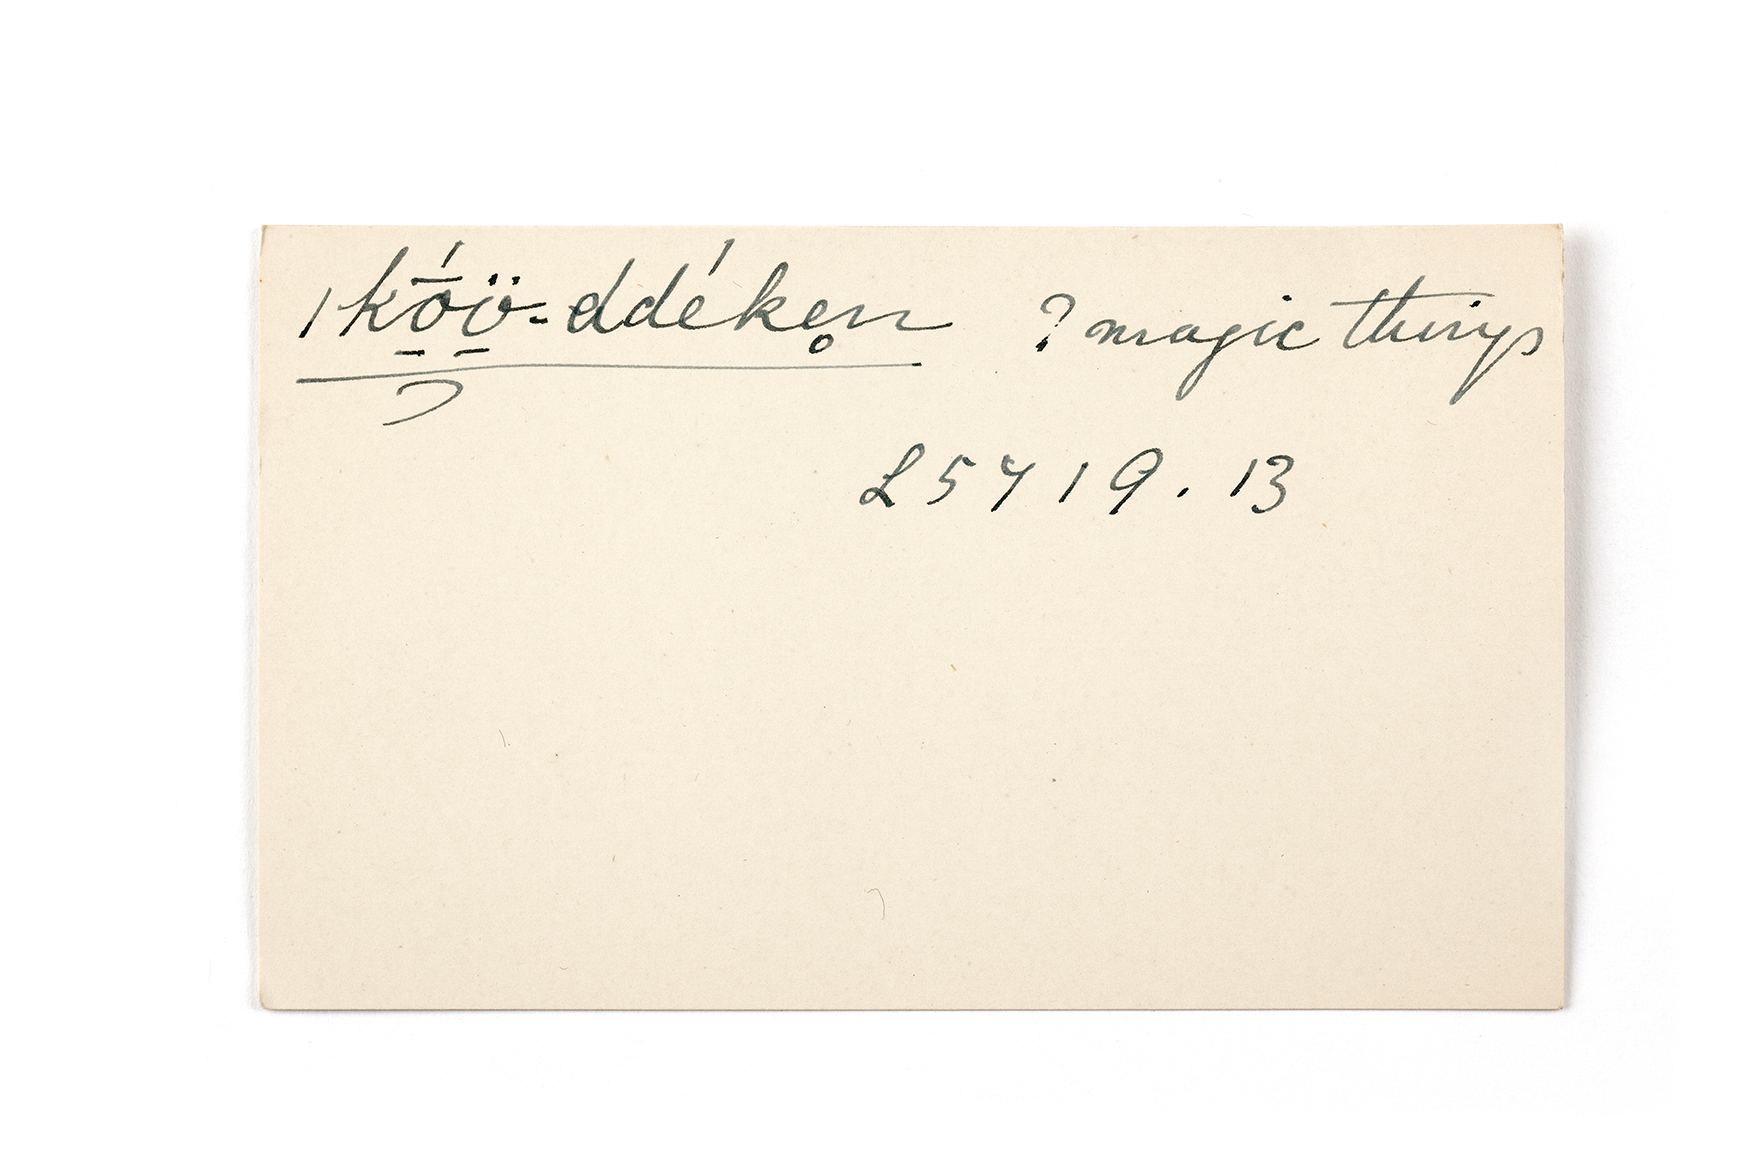 ˌkṓ̱ö̱-ddéken̥ ? magic things
L5719.13